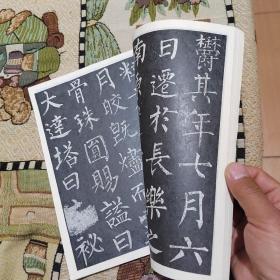 欝其年七月六
日遷於長樂之
南
月皎既燼而
骨珠圓賜謚曰
大達塔曰
秘